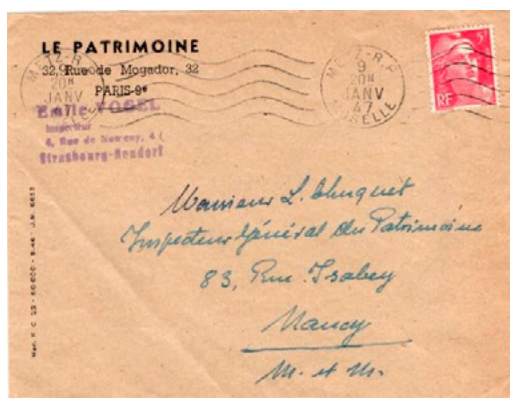 LE PATRIMOINE
32, Rue de Mogador, 32
PARIS-9e
Emile VOGEL
Inspecteur
4, Rue de 4
Strasbourg-Neudorf
METZ R.P.
9
20H
JANV
47
MOSELLE
METZ R.P.
9
20H
JANV
47
MOSELLE
RF
Monsieur L.
Inspecteur Général du Patrimoine
83, Rue Isabey
Nancy
M. et M.